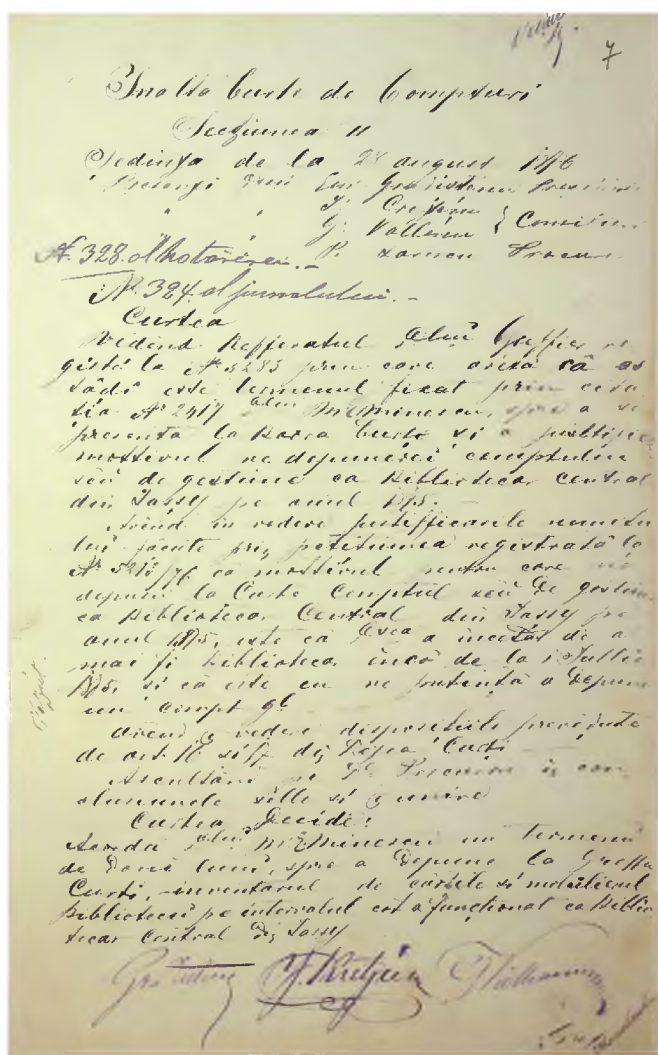 7
Inalta Curte de Compturi
Secțiunea II
Ședința de la 28 august 1876
Presenți Dnii Em. Grădisteanu
" " I. Crețianu
G. Vallianu } Consilieri
No. 328 al hotărîrei.
No. 324 al jurnalului.
Curtea
Vedênd Refferatul Dlui Greffier
gistrat la No 5283 prin care arètă că as
tădi este termenul ficsat prin cita
ția No 2417 Dlui M. Eminescu, spre a se
presenta la Bara Curții si a justifica
mottivul ne depunerei comptului
sëu de gestiune ca Bibliotecar Central
din Iassy pe anul 1875.
Avênd in vedere justifficările numitu
lui făcute prin petitiunea registrată la
No 5210/76 că mottivul pentru care nu
depune la Curte Comptul sëu de gestiune
ca Bibliotecar Central din Iassy pe
anul 1875, este că Dsea a încetat de a
mai fi bibliotecar încă de la 1 Iullie
1875, si că este cu ne putință a depune
un compt
Avênd in vedere dispositiile prevèdute
de art. 16 si 17 din Legea Curții
Ascultând pe Dl Procuror in con
clusiunele selle si in unire
Curtea Decide:
Acordă Dlui M. Eminescu un termenu
de Doue luni, spre a depune la Greffa
Curții, inventarul de cărțile si mobilierul
bibliotecei pe intervalul cât a funcționat ca Biblio
tecar Central din Iassy